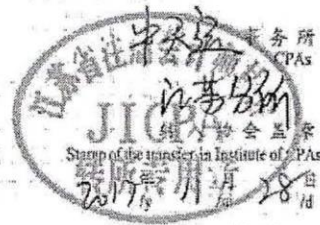 中天运 事务所
CPAs
江苏省注册会计师协会
江苏分所
JICPA
转入协会盖章
Stamp of the transfer-in Institute of CPAs
转所专用章
2017年 11月 28日
/y /m /d